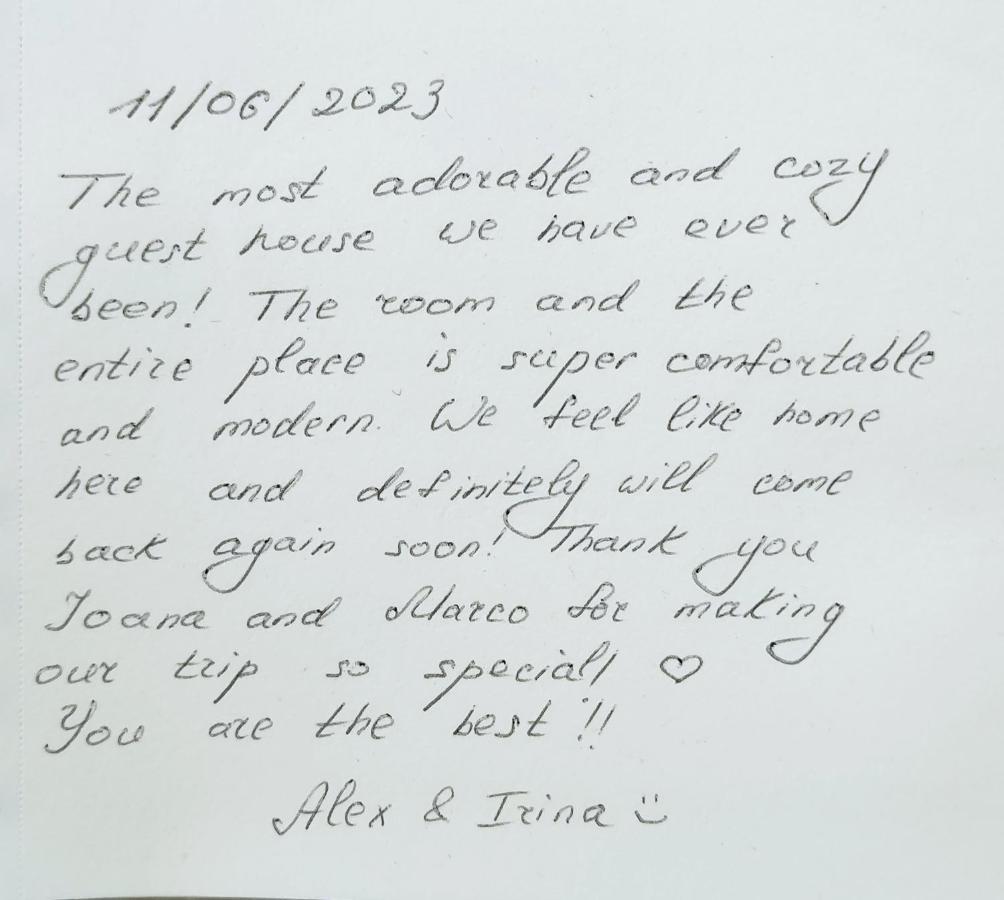 11/06/2023
The most adorable and cozy
guest house we have ever
been! The room and the
entire place is super comfortable
and modern. We feel like home
here and definitely will come
back again soon! Thank you
Ioana and Marco for making
our trip so special! ♡
You are the best!!
Alex & Irina :)